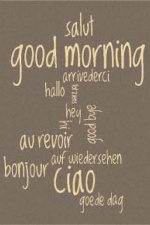 salut
good morning
arrivederci
hallo
hey
good bye
hi
au revoir
auf wiedersehen
bonjour
Ciao
goede dag